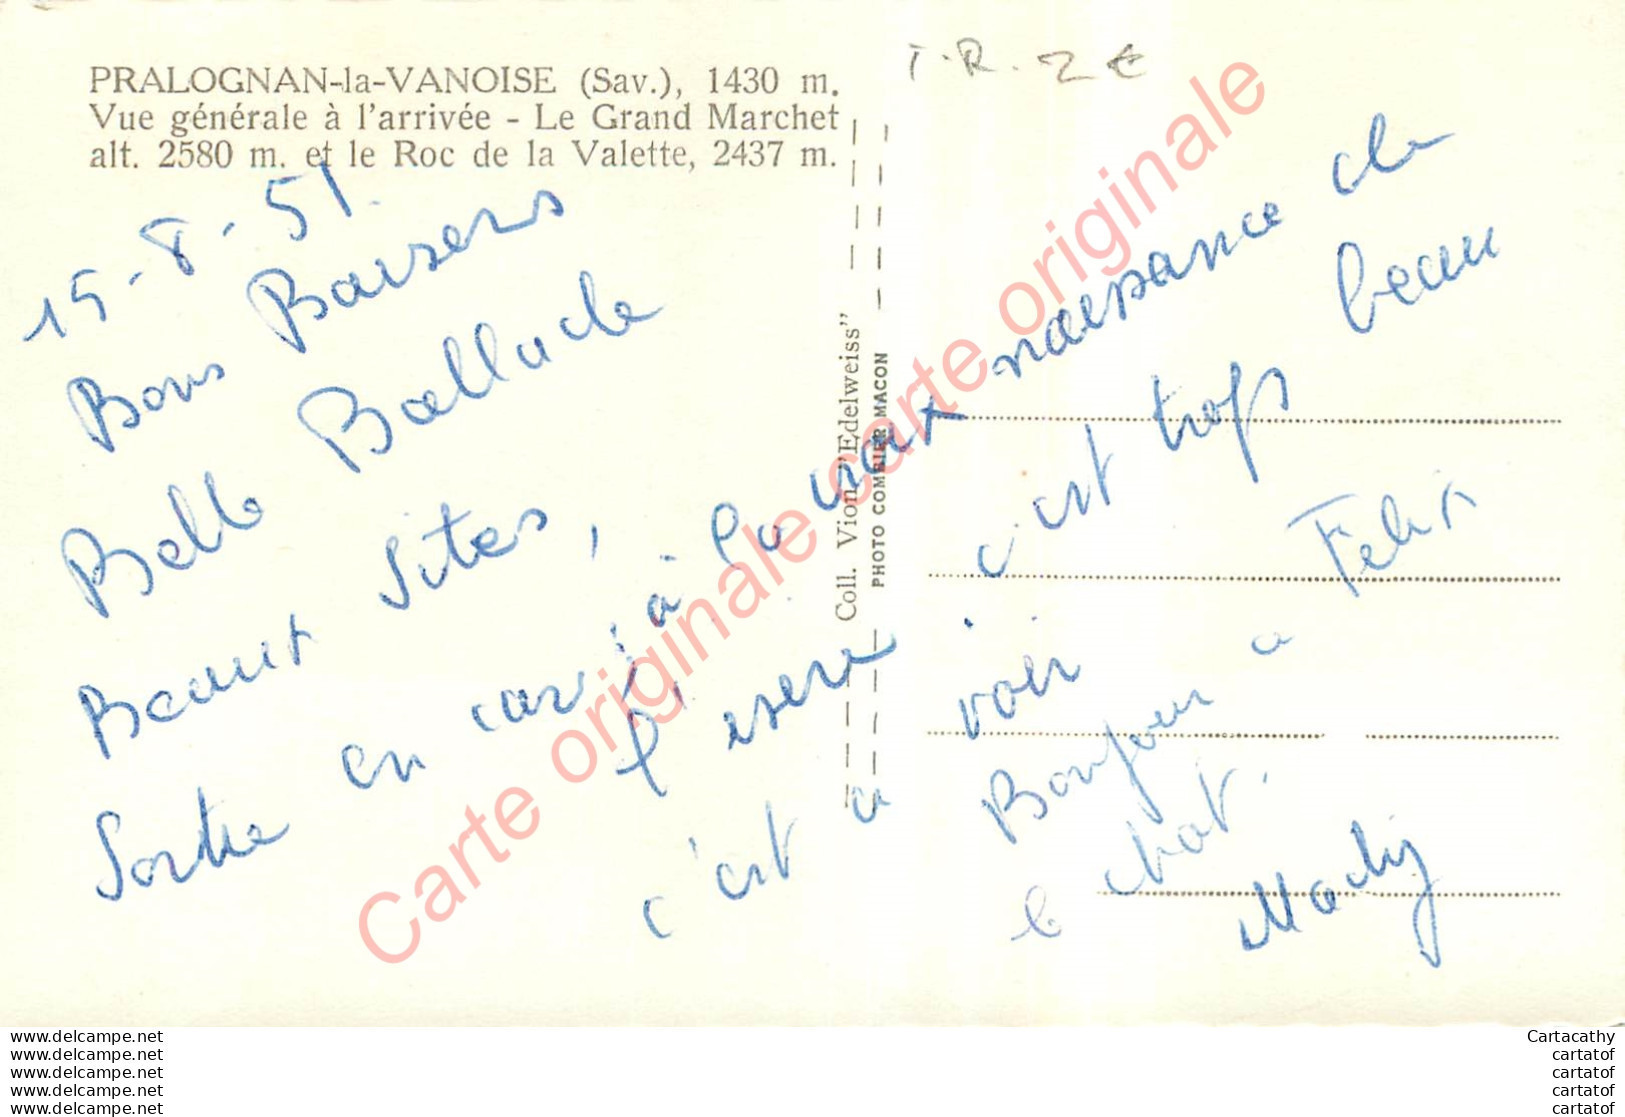 PRALOGNAN-la-VANOISE (Sav.), 1430 m.
Vue générale à l'arrivée - Le Grand Marchet
alt. 2580 m. et le Roc de la Valette, 2437 m.
T.R. 2€
15-8-51.
Bons Baisers
Belle Ballade
Beaux Sites,
Sortie en car à la vrai naissance de
l'isere. c'est trop beau
c'est a voir
Bonjour a Felix
le chat.
Mady
Coll. Vion "Edelweiss"
PHOTO COMBIER MACON
Carte originale carte originale
www.delcampe.net
www.delcampe.net
www.delcampe.net
www.delcampe.net
www.delcampe.net
Cartacathy
cartatof
cartatof
cartatof
cartatof